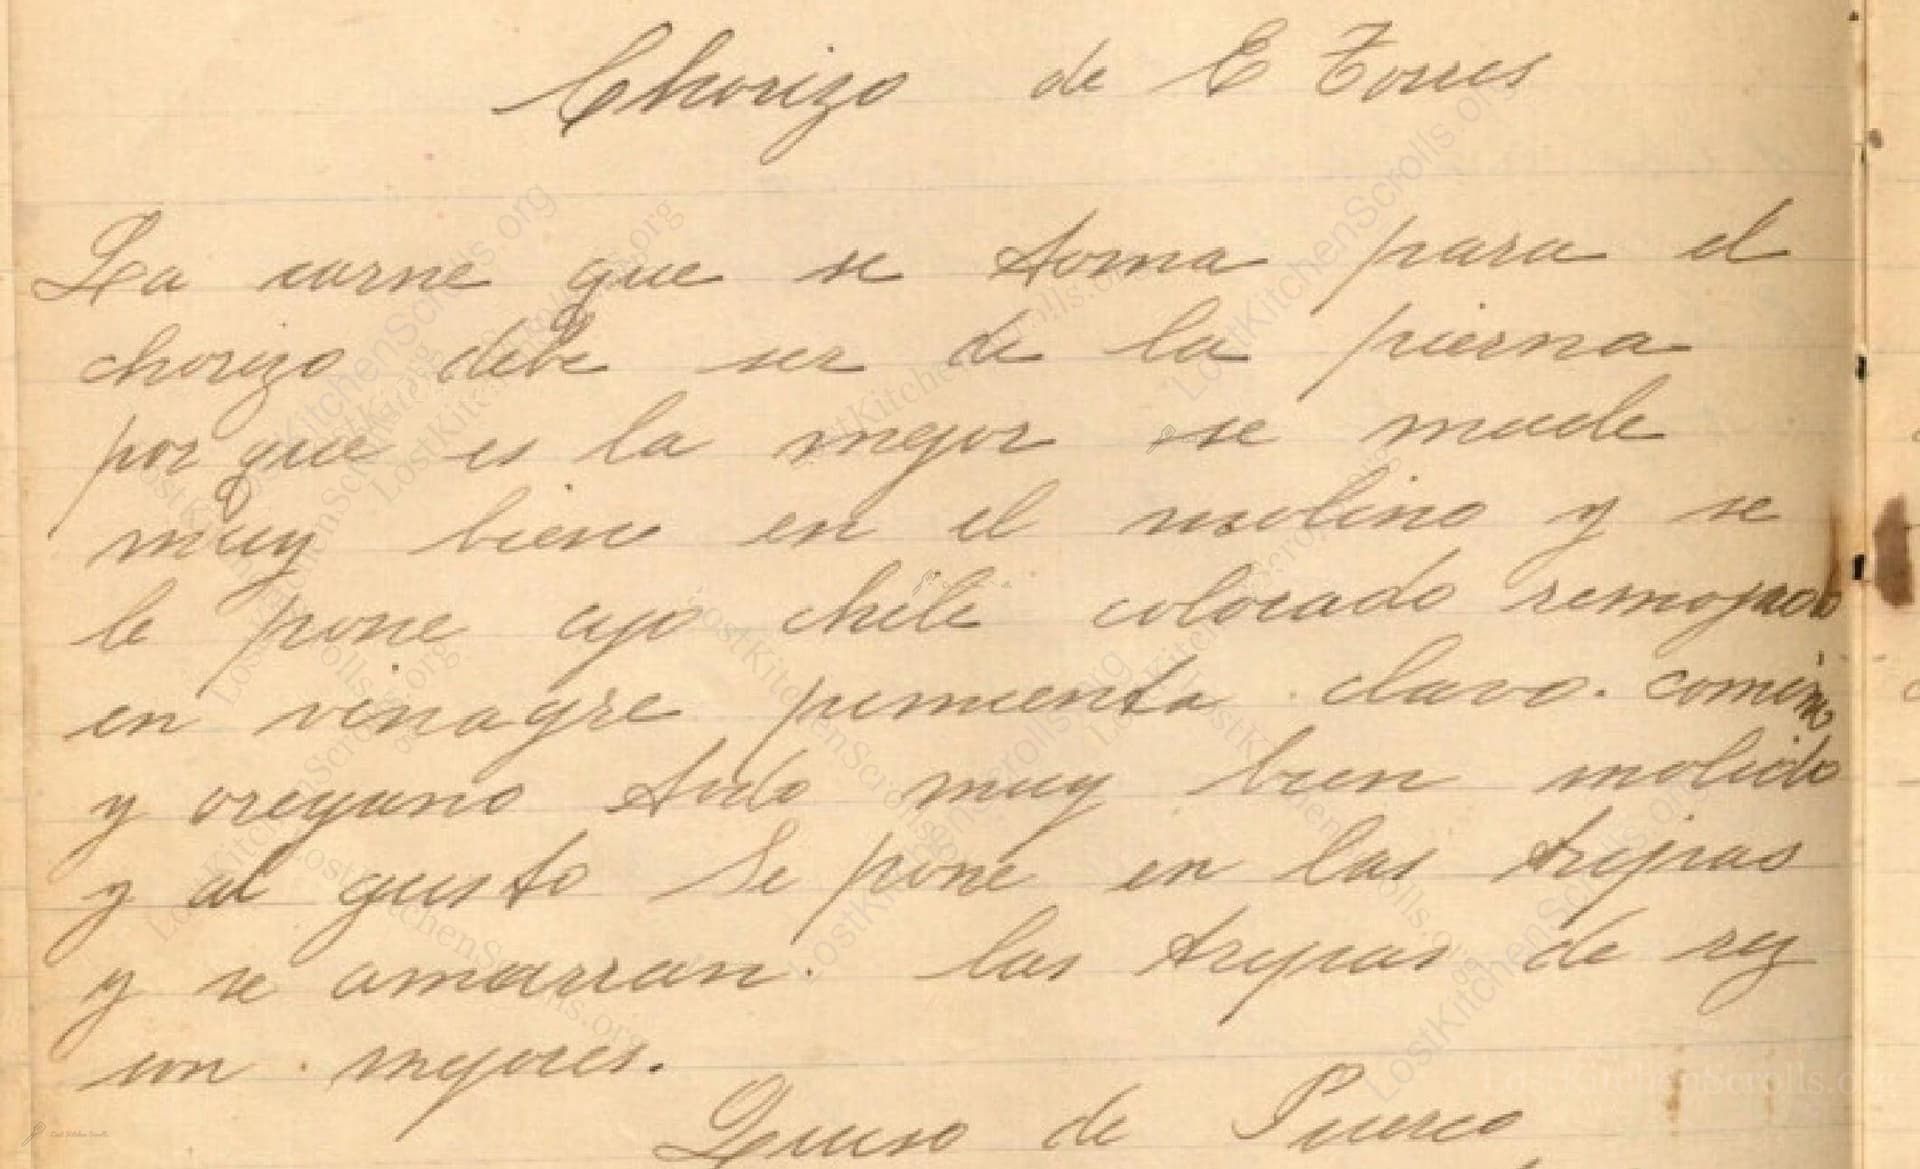 Chorizo de E Torres
La carne que se toma para el
chorizo debe ser de la pierna
por que es la mejor se muele
muy bien en el molino y se
le pone ajo chile colorado remojado
en vinagre pimienta clavo. comino
y oregano todo muy bien molido
y al gusto Se pone en las tripas
y se amarran. las tripas de rez
son mejores.
de Puerco